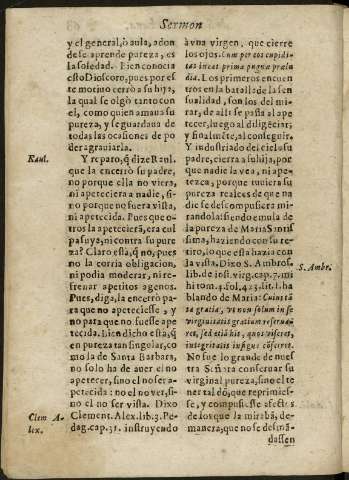 Sermon
y el general, ò aula, adon
de se aprende pureza, es
la soledad. Bien conocia
esto Dioscoro, pues por es
te motiuo cerrò a su hija,
la qual se olgò tanto con
el, como quien amaua su
pureza, y se guardaua de
todas las ocasiones de po
der agrauiarla.
Raul.
Y reparo, q̃ dize Raul.
que la encerrò su padre,
no porque ella no viera,
ni apeteciera a nadie, si-
no porque no fuera vista,
ni apetecida. Pues que o-
tros la apetecierã, era cul
pa suya, ni contra su pure
za? Claro està, q̃ no, pues
no la corria obligacion,
ni podia moderar, ni re-
frenar apetitos agenos.
Pues, diga, la encerrò pa-
ra que no apeteciesse, y
no para que no fuesse ape
tecida. Bien dicho està, q̃
en pureza tan singular, co
mo la de Santa Barbara,
no solo ha de auer el no
apetecer, sino el no ser a-
petecida: no el no ver, si-
no el no ser vista. Dixo
Clem A-
lex.
Clement. Alex. lib. 3. Pe-
dag. cap. 31. instruyendo
à vna virgen, que cierre
los ojos. Cum per eos cupidi-
tas ineat prima pugnæ prælu
dia. Los primeros encuen
tros en la batalla de la sen
sualidad, son los del mi-
rar, de alli se passa al ape
tecer, luego al diligẽciar;
y finalmẽte, al conseguir.
Y industriado del cielo su
padre, cierra a su hija, por
que nadie la vea, ni ape-
tezca, porque tuuiera su
pureza reales de que na
die se descompusiera mi-
randola: siendo emula de
la pureza de Maria Santis
sima, haziendo con su re-
tiro, lo que esta hazia con
la vista. Dixo S. Ambros.
S. Ambr.
lib. de inst. virg. cap. 7. mi
hi tom. 4. fol. 423. lit. I. ha
blando de Maria: Cuius tã
ta gratia, vt non solum in se
virginitatis gratiam reserua
ret, sed etiã his, quos viseret,
integritatis insigne cõferret.
No fue lo grande de nues
tra Señora conseruar su
virginal pureza, sino el te
ner tal dõ, que reprimies-
se, y compusiesse afectos
de los que la mirabã, de-
manera, que no se desmã-
dassen